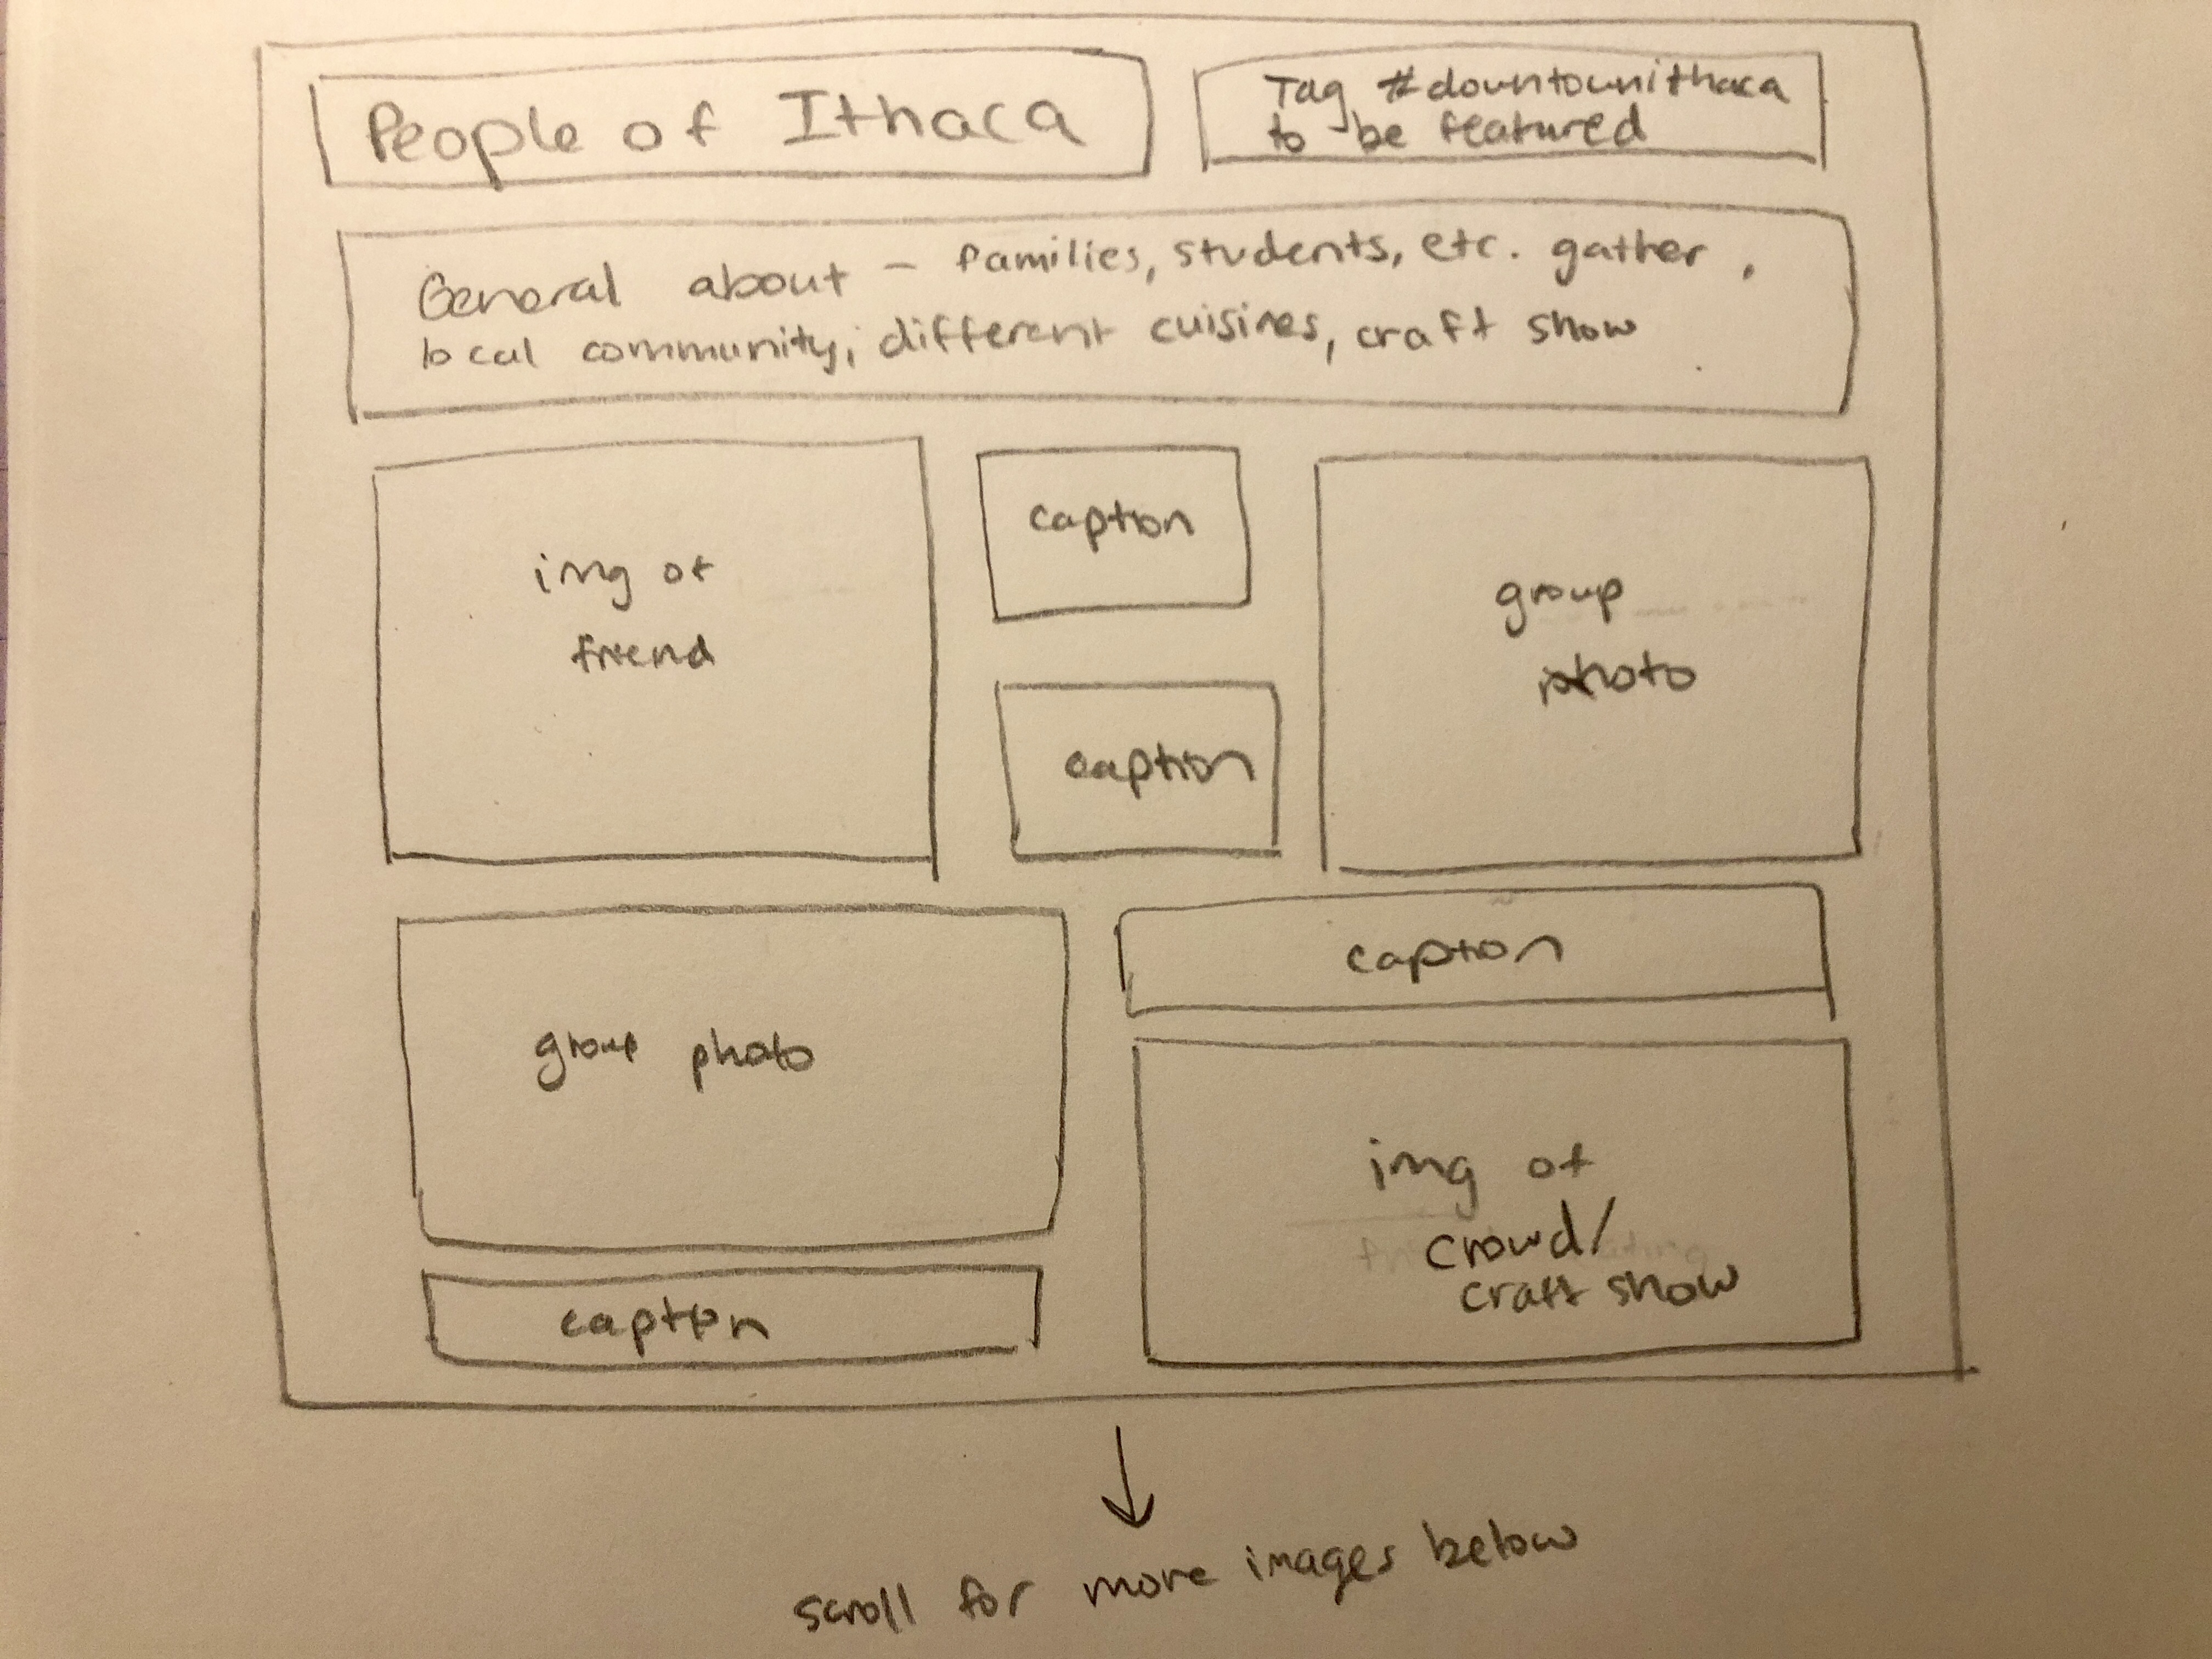 People of Ithaca
Tag #downtownithaca
to be featured
General about - families, students, etc. gather,
local community, different cuisines, craft show
img of
friend
caption
caption
group
photo
group photo
caption
caption
img of
crowd/
craft show
scroll for more images below